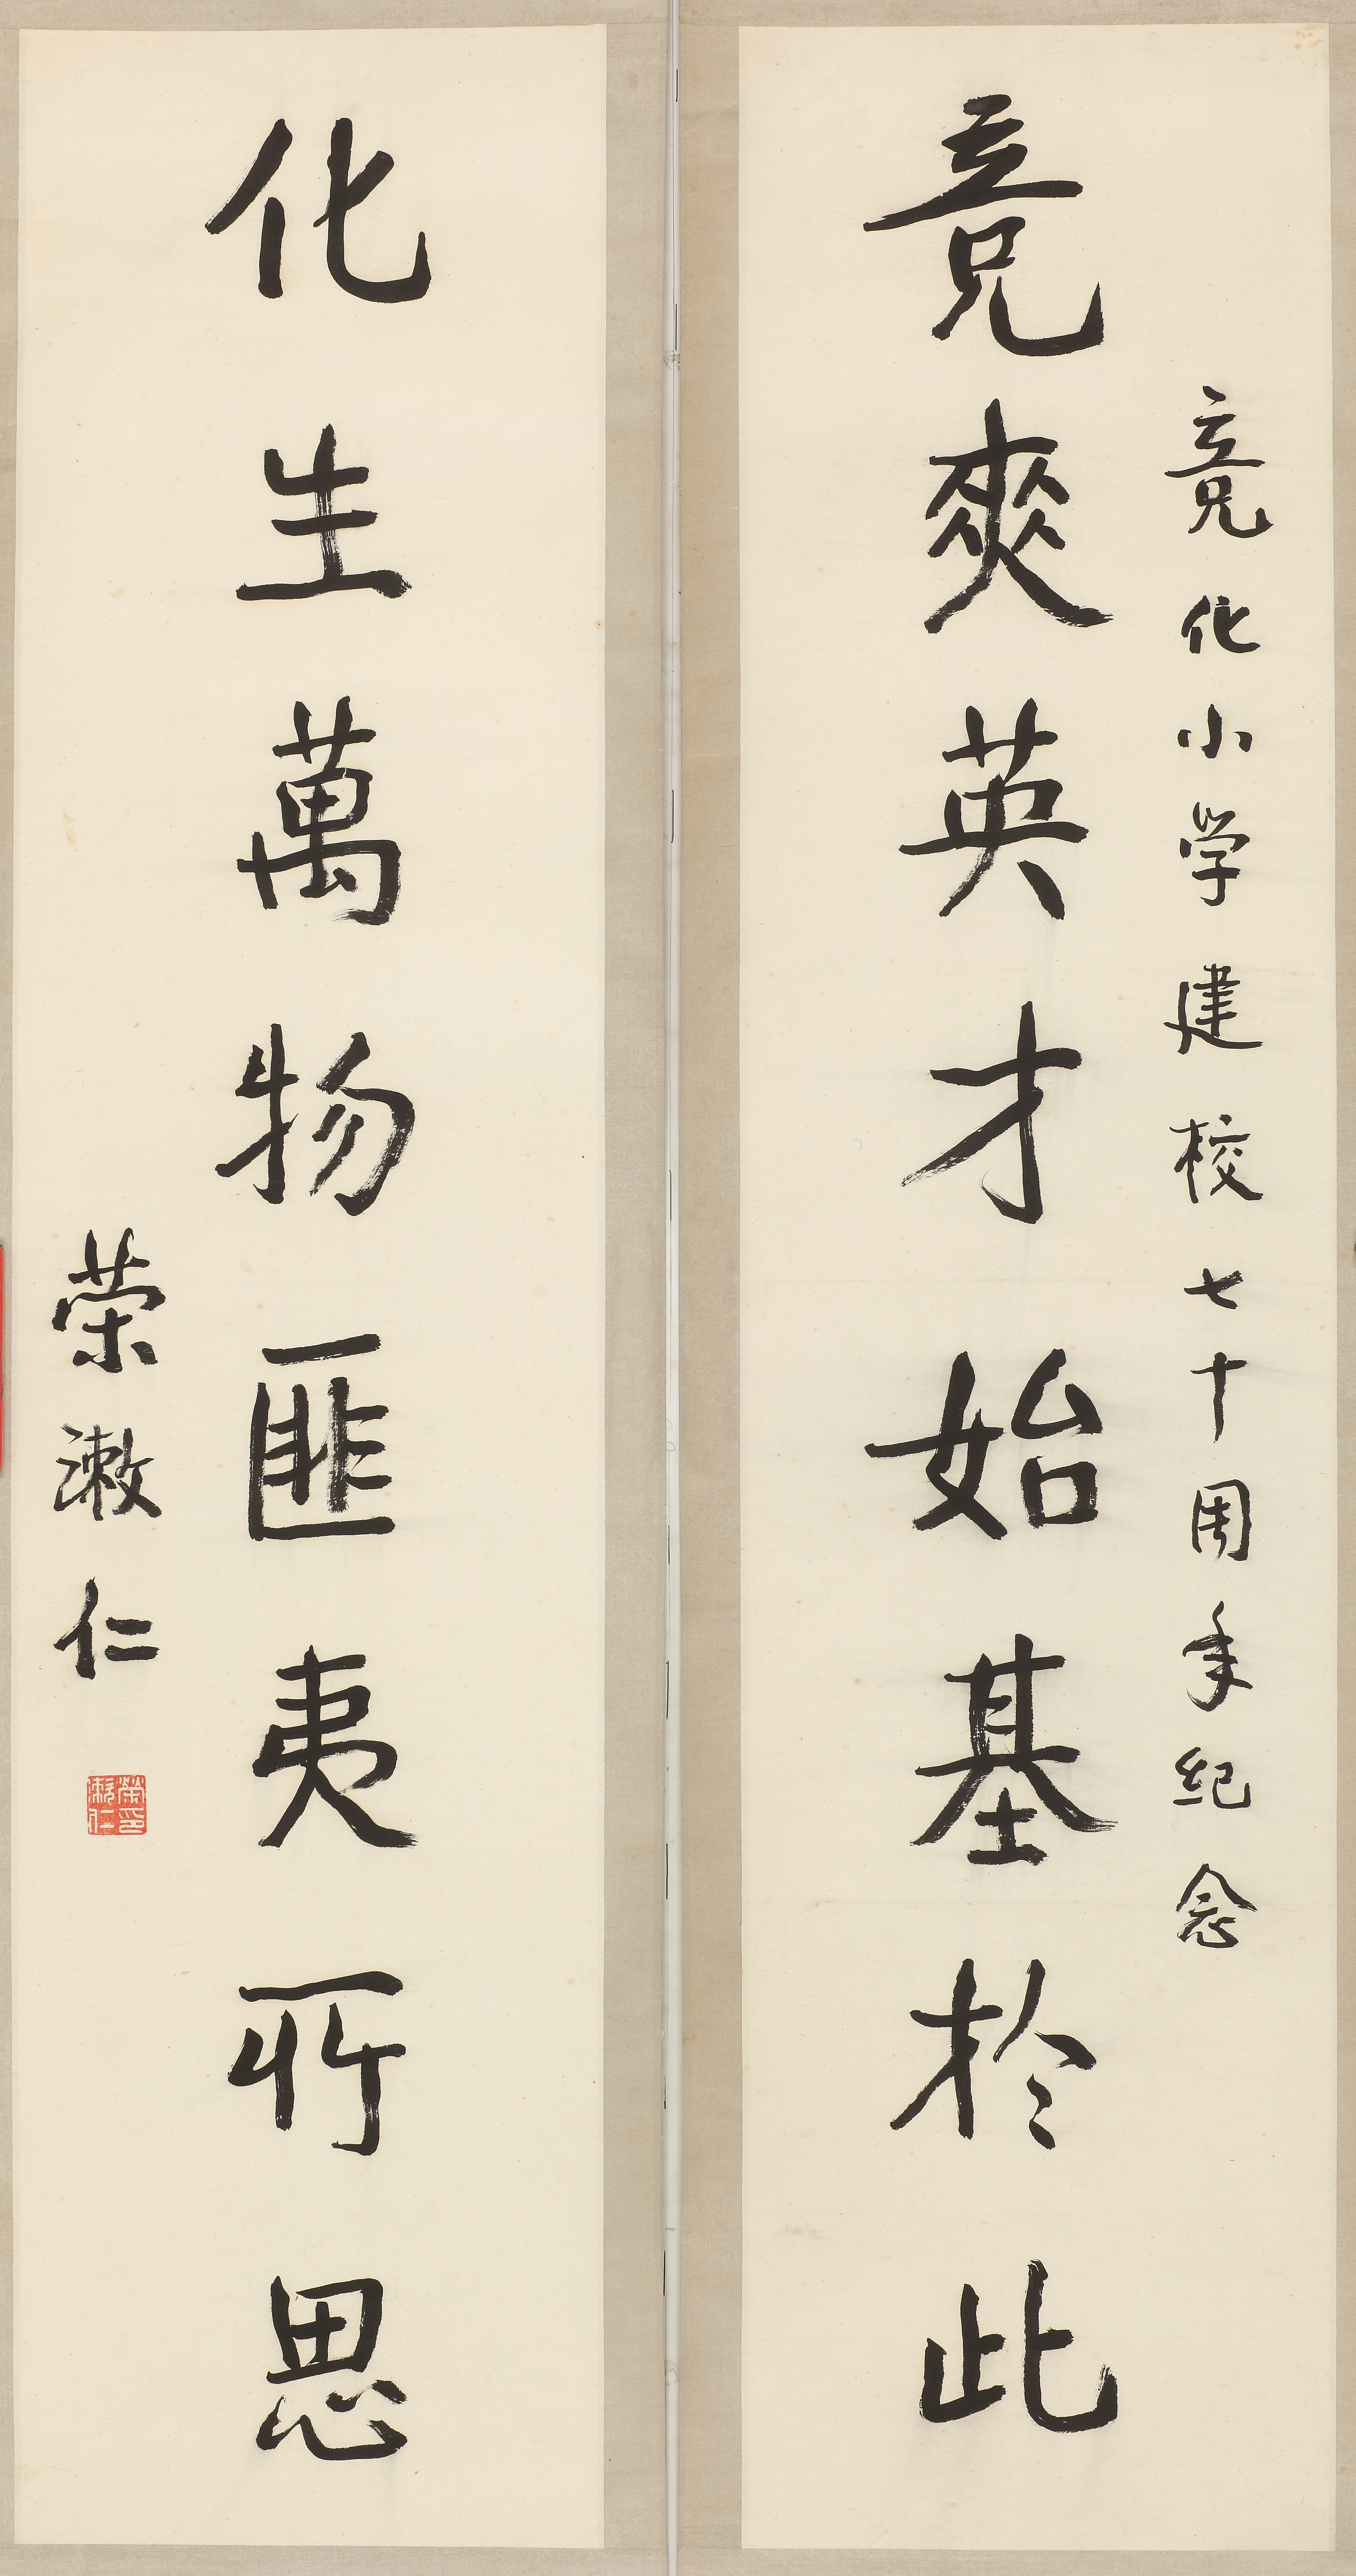 竞化小学建校七十周年纪念
竞爽英才始基於此
化生萬物匪夷所思
荣漱仁
榮印
漱仁